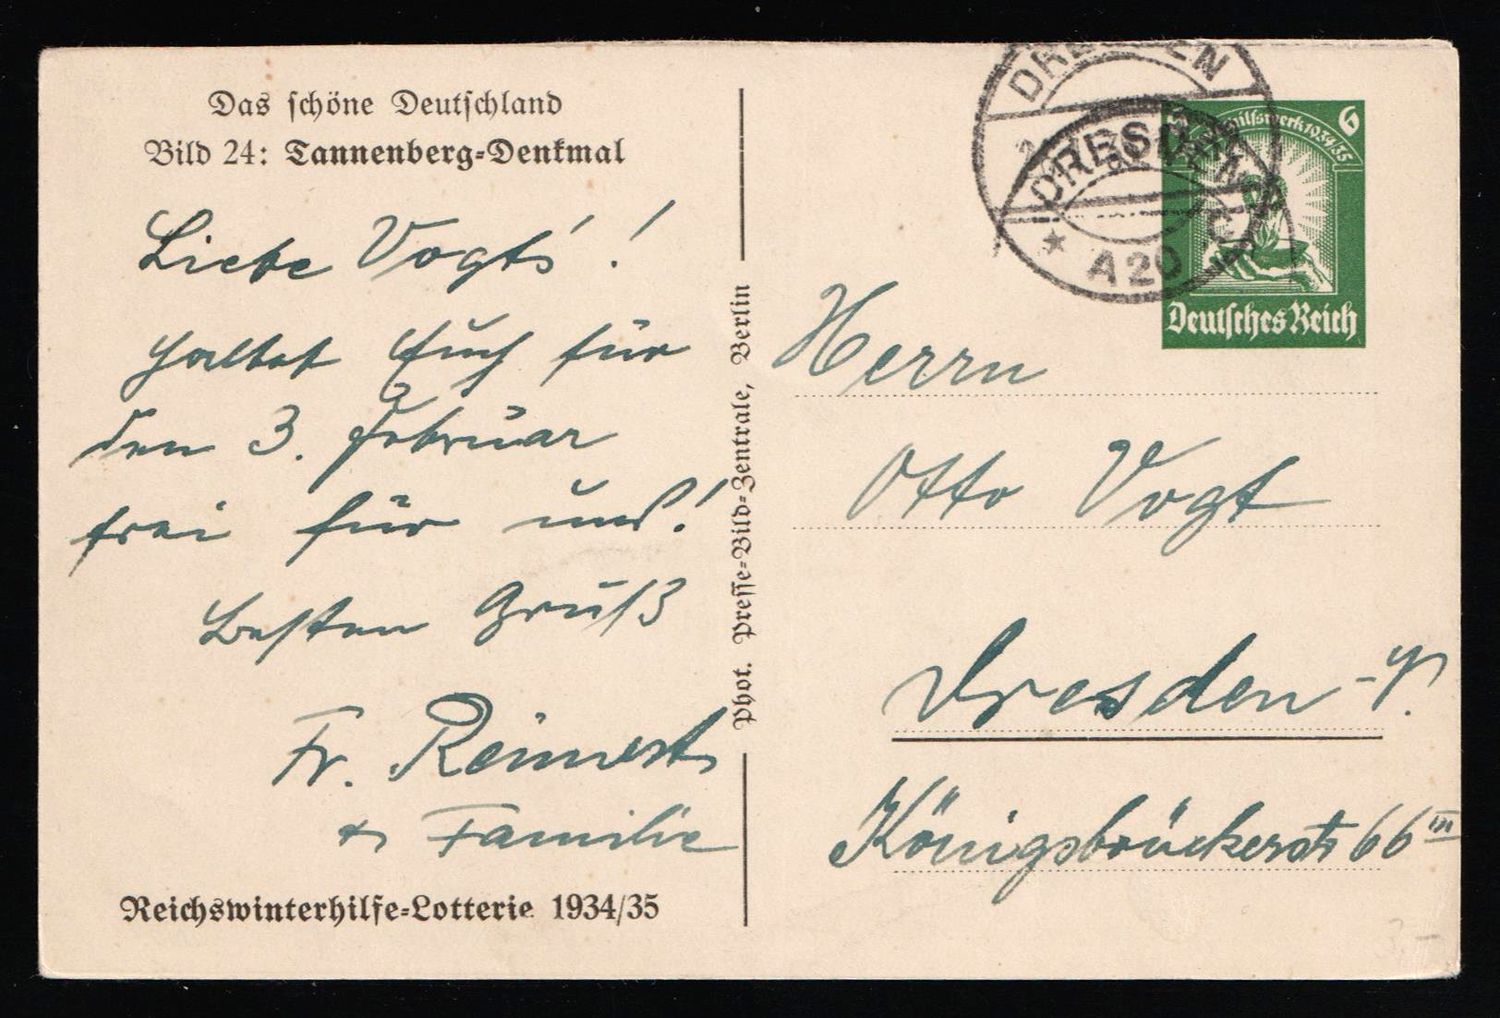 Das schöne Deutschland
Bild 24: Tannenberg-Denkmal
Liebe Vogts'!
Haltet Euch für
den 3. Februar
frei für uns!
Besten Gruß
Fr.
& Familie
Reichswinterhilfe-Lotterie 1934/35
Phot. Presse-Bild-Zentrale, Berlin
DRESDEN
DRESDEN
A20
6
1934/35
Deutsches Reich
Herrn
Otto Vogt
Dresden-
Königsbrückerstr 66 III
3.-